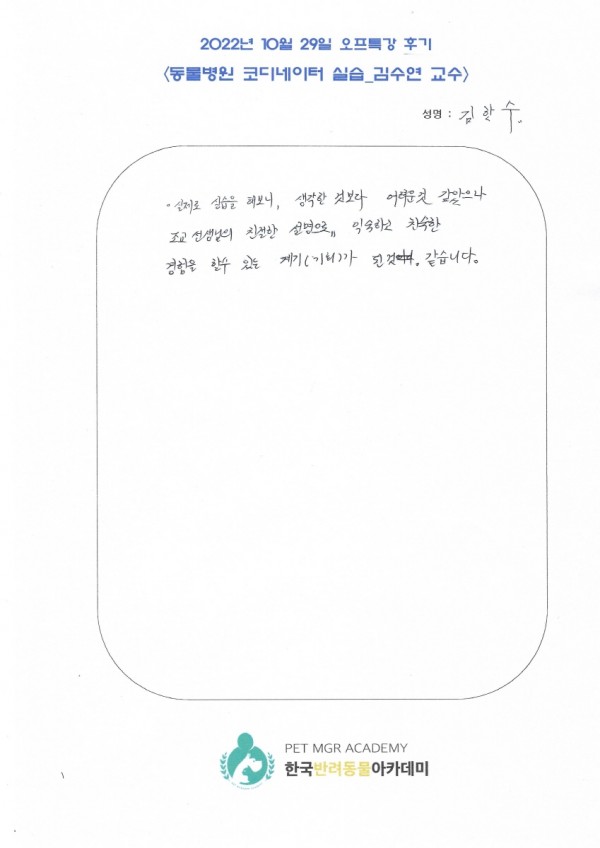 2022년 10월 29일 오프특강 후기
<동물병원 코디네이터 실습_김수연 교수>
성명 : 김학수
실제로 실습을 해보니, 생각한 것보다 어려운것 같았으나
조교 선생님의 친절한 설명으로, 익숙하고 친숙한
경험을 할수 있는 계기(기회)가 된것 같습니다.
PET MGR ACADEMY
한국반려동물아카데미